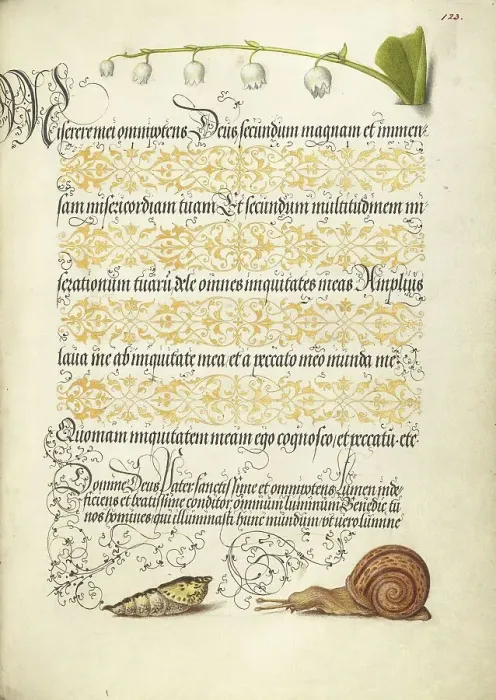 123.
Miserere mei omnipotens Deus secundum magnam et immen-
sam misericordiam tuam Et secundum multitudinem mi-
serationum tuarū, dele omnes iniquitates meas. Amplius
laua me ab iniquitate mea, et a peccato meo munda me
Quoniam iniquitatem meam ego cognosco, et peccatū etc.
Domine Deus Pater sanctissime et omnipotens, Lumen inde-
ficiens et beatissime conditor, omnium luminum, Benedic tu
nos homines, qui illuminasti hunc mundum, vt vero lumine